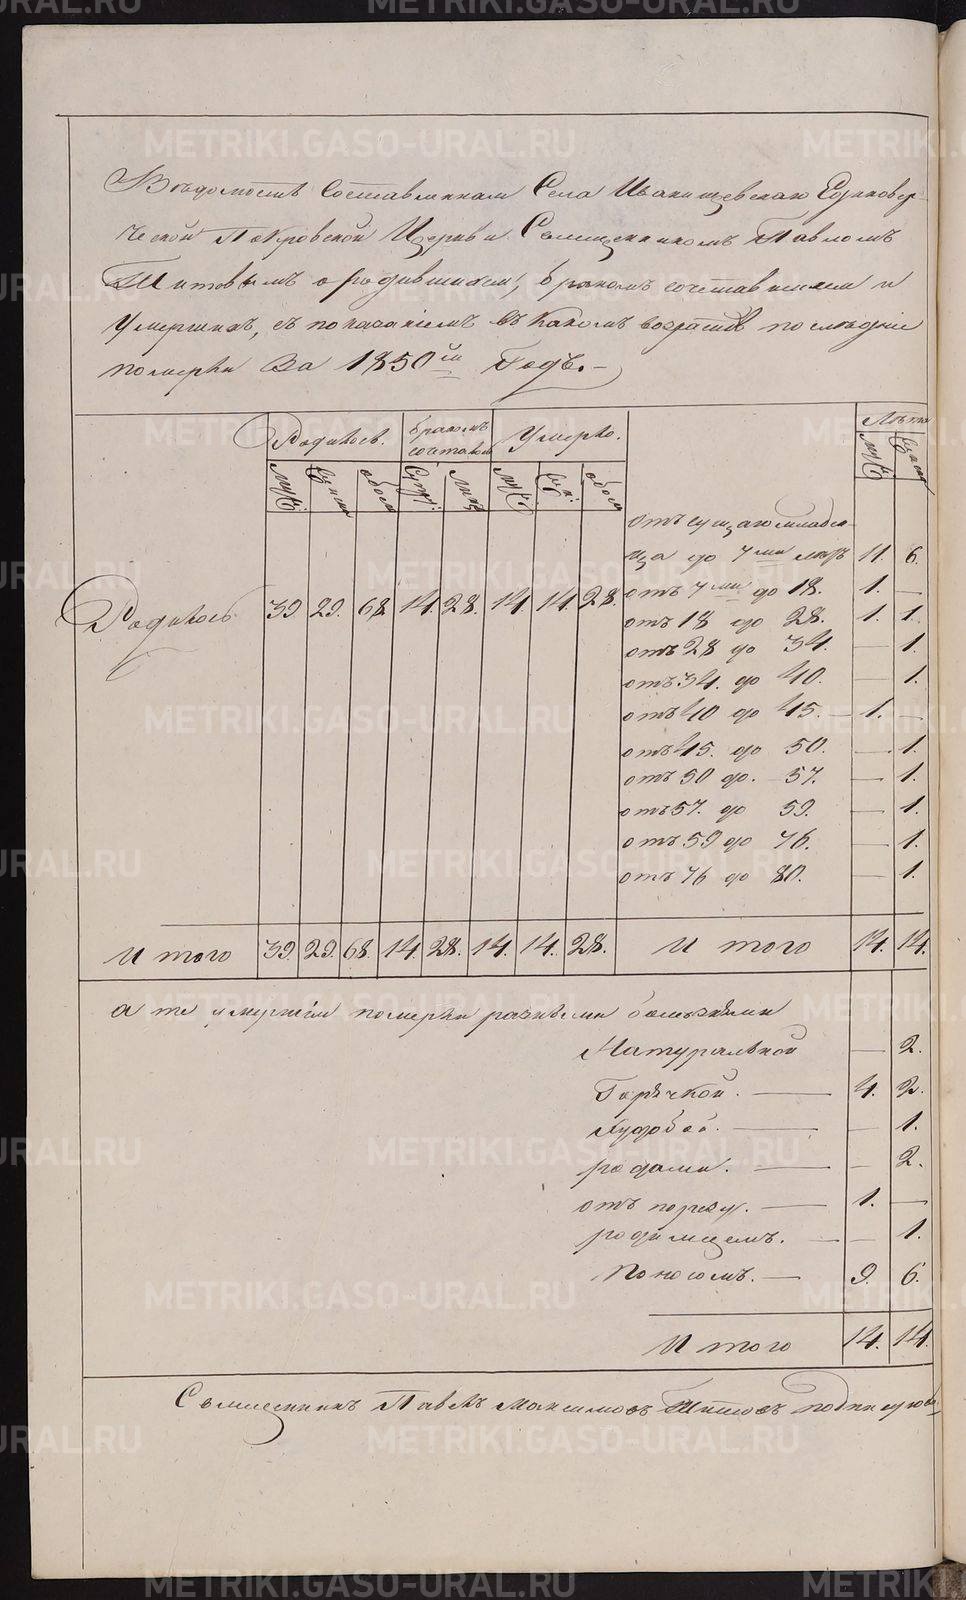 Ведомость Составленная Села Иванищевскаго Единовер-
ческой Покровской Церкви Священникомъ Павломъ
Титовымъ о родившихся, бракомъ сочетавшихся и
Умершихъ, съ показаніемъ въ какомъ возрасте последніе
померли За 1850й Годъ.-
Родилось. бракомъ Умерло. Лета
муж: женска обоего муж: обоего муж: женска
отъ сущаго младен-
ца до 7ми летъ 11. 6.
Родилось 39. 29. 68. 14. 28. 14. 14. 28. отъ 7ми до 18. 1. —
отъ 18 до 28. 1. 1.
отъ 28 до 34. — 1.
отъ 34. до 40. — 1.
отъ 40 до 45. — 1. —
отъ 45. до 50. — 1.
отъ 50 до. 57. — 1.
отъ 57. до 59. — 1.
отъ 59 до 76. — 1.
отъ 76 до 80. — 1.
Итого 39. 29. 68. 14. 28. 14. 14. 28. Итого 14. 14.
а те умершіи померли разными болезнями
Натуральной — 2.
Горячкой. — 4. 2.
Худобой. — — 1.
родами. — — 2.
отъ порезу. — 1. —
родимцемъ. — — 1.
Поносомъ. — 9. 6.
Итого 14. 14.
Священникъ Павелъ Максимовъ Титовъ
METRIKI.GASO-URAL.RU